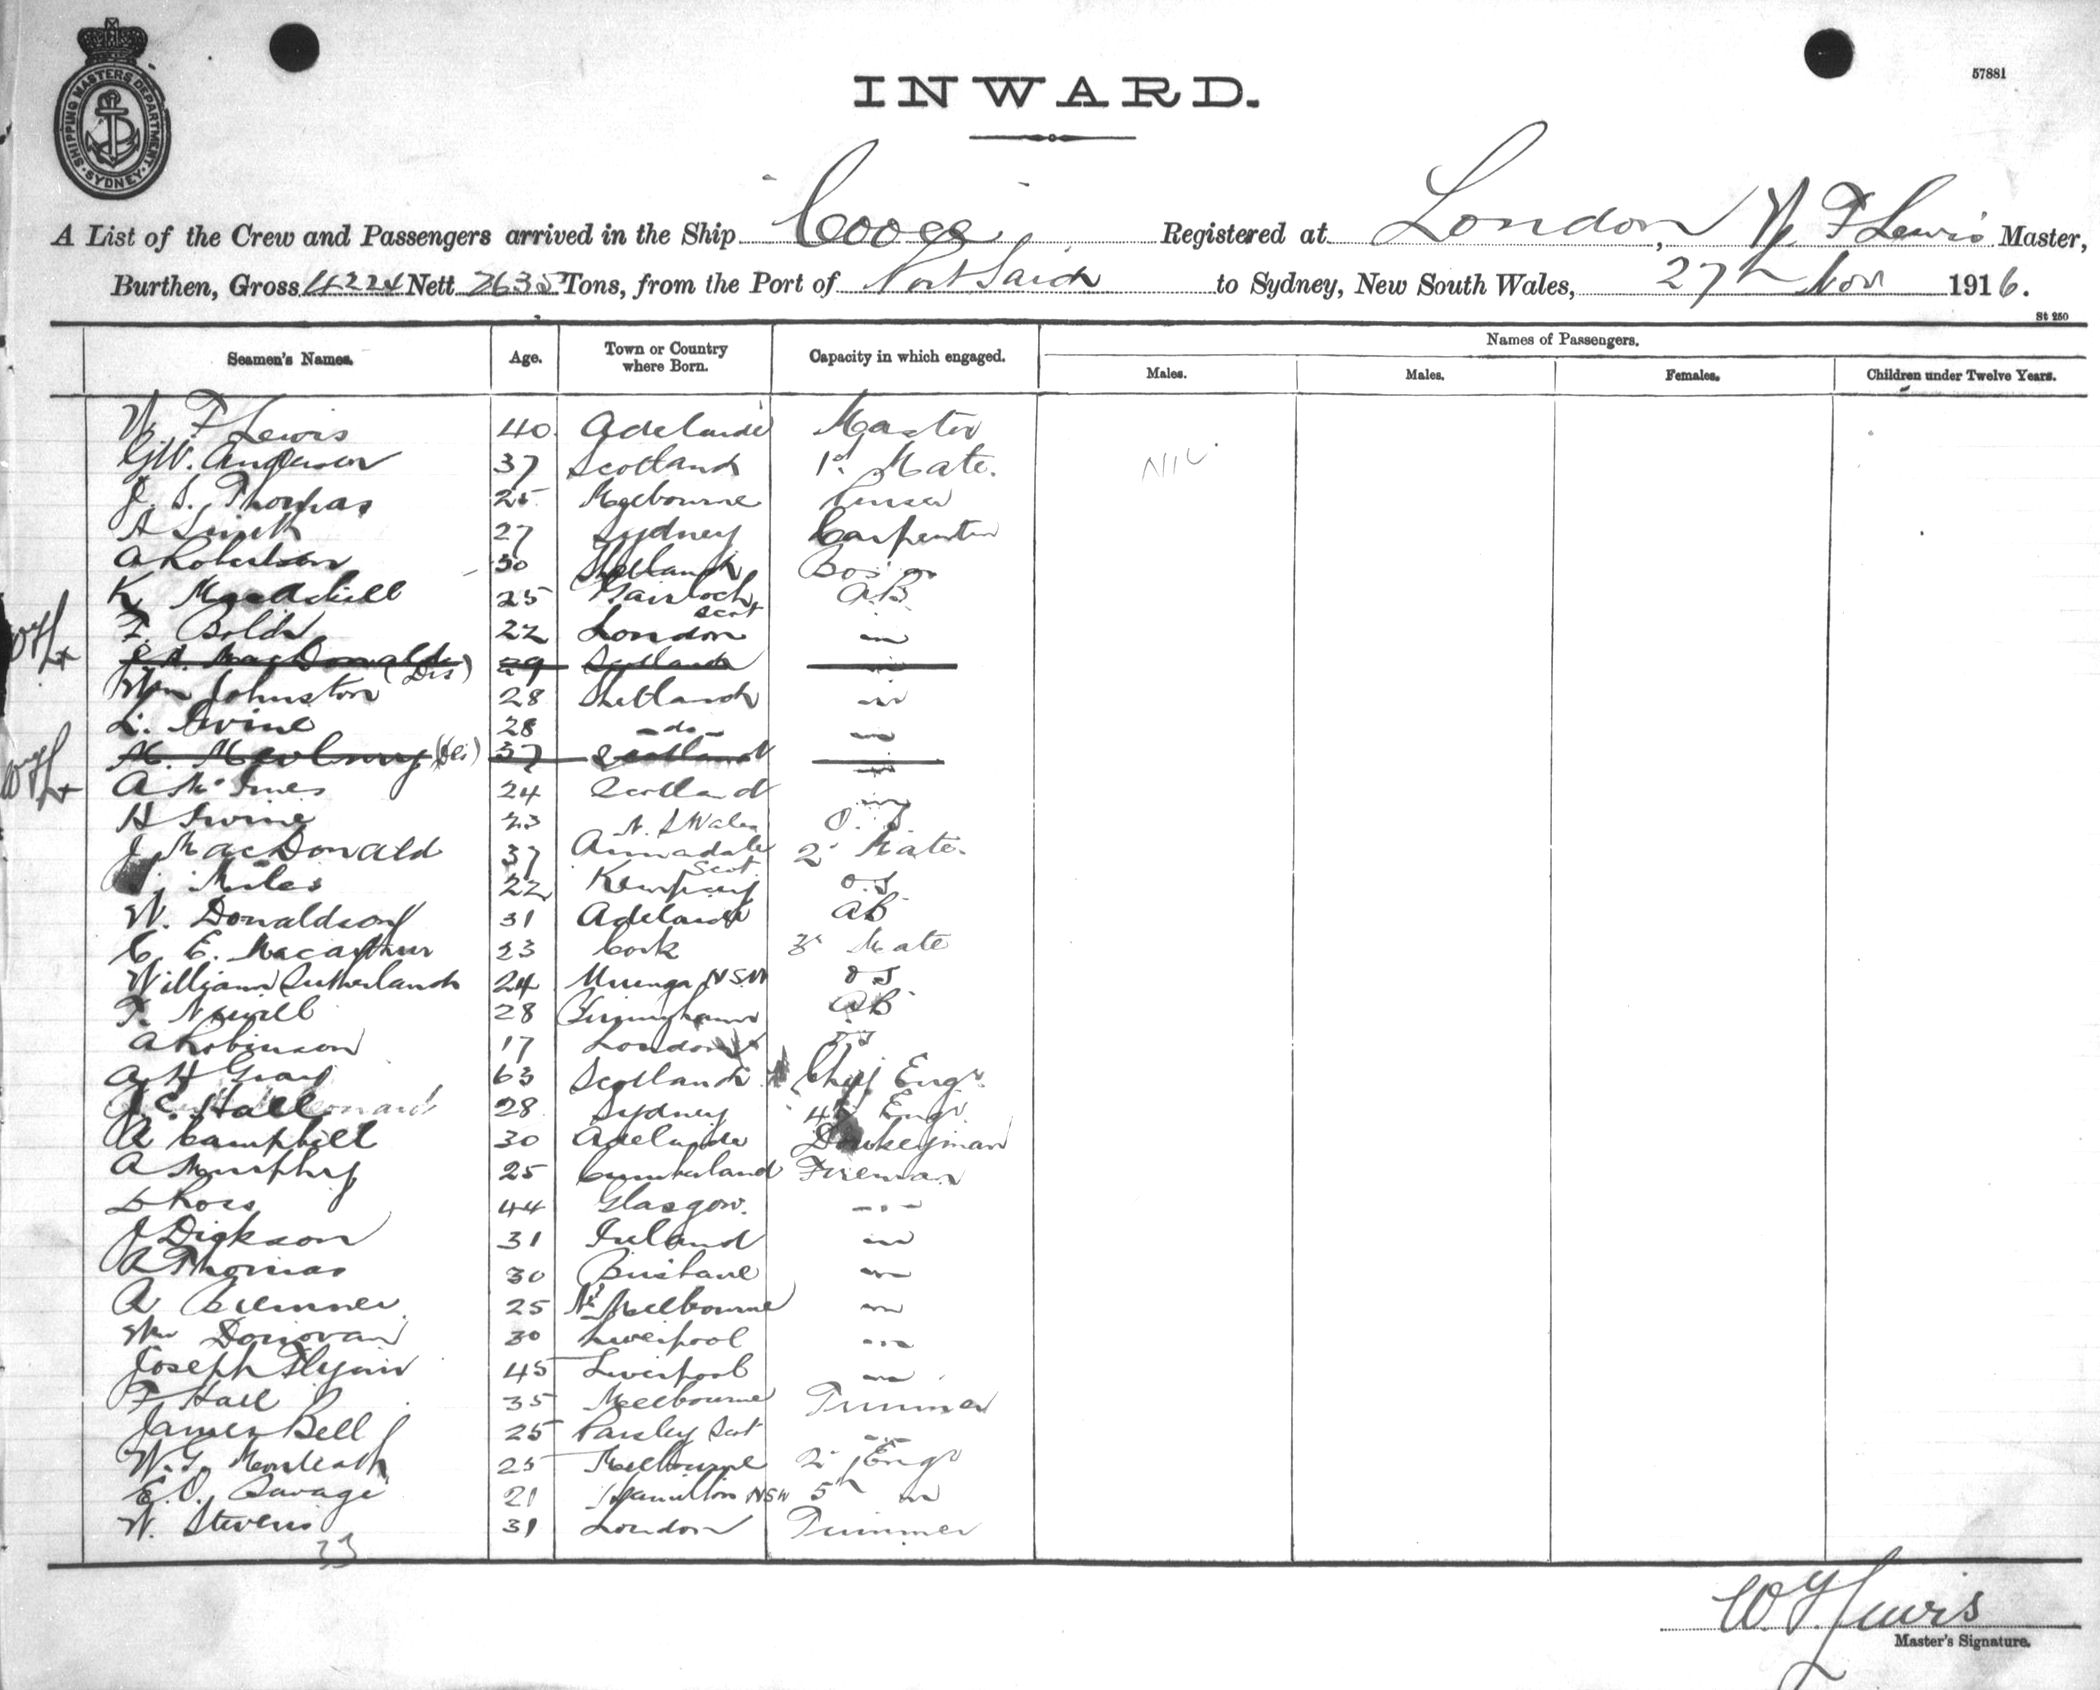 SHIPPING MASTERS DEPARTMENT SYDNEY
57881
INWARD.
A List of the Crew and Passengers arrived in the Ship Coogee Registered at London, W. F Lewis Master,
Burthen, Gross 4224 Nett 2635 Tons, from the Port of Port Said to Sydney, New South Wales, 27th Nov 1916.
St 250
Seamen's Names. Age. Town or Country where Born. Capacity in which engaged. Names of Passengers.
Males. Males. Females. Children under Twelve Years.
W. F Lewis 40 Adelaide Master
G.W. Anderson 37 Scotland 1st Mate. NIL
J. S. Thomas 25 Melbourne Purser
A Smith 27 Sydney Carpenter
A Robertson 30 Shetland Bos'n
K. 25 Gairloch Scot AB
F. Bold 22 London "
MacDonald (Dis) 29 Scotland "
Wm Johnston 28 Shetland "
L. Irvine 28 -do- "
M. (Dis) 37 Scotland "
A McInnes 24 Scotland "
H Irvine 23 N. S Wales O.S
J MacDonald 37 Annadale Scot 2d Mate.
Miles 22 Kempsey O.S
W. Donaldson 31 Adelaide AB
C. E. Macarthur 23 Cork 3d Mate
William Sutherland 24 NSW O S
T. Newell 28 Birmingham AB
A Robinson 17 London O S
A H Gray 63 Scotland Chief Engr.
J. C. Hall 28 Sydney 4th Engr
A Campbell 30 Adelaide Donkeyman
A Murphy 25 Cumberland Fireman
D Ross 44 Glasgow. "
J Dickson 31 Ireland "
A Thomas 30 Brisbane "
A Bremner 25 Nth Melbourne "
Wm Donovan 30 Liverpool "
Joseph Flynn 45 Liverpool "
F Hall 35 Melbourne Trimmer
James Bell 25 Paisley Scot "
W. G. Monteath 25 Melbourne 2d Engr
E. O. Savage 21 Hamilton NSW 5th "
W. Stevens 31 London Trimmer
33
W. F. Lewis
Master's Signature.